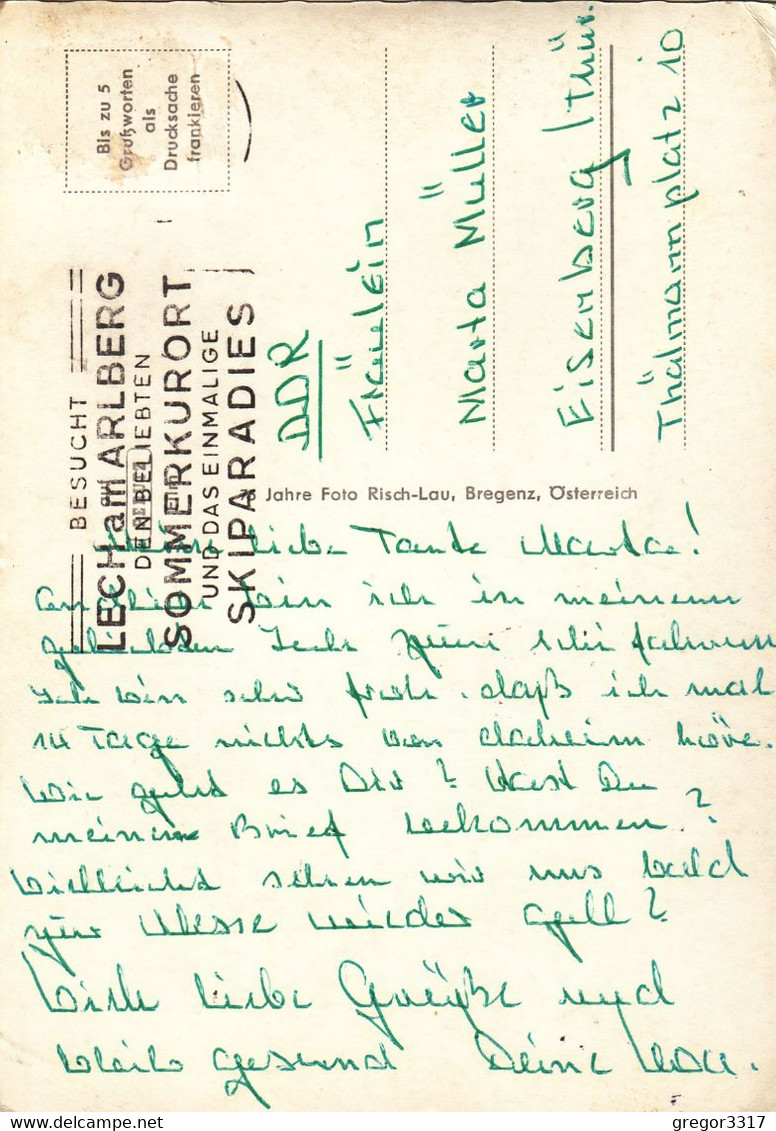 Bis zu 5
Grußworten
als
Drucksache
frankieren
BESUCHT
LECH am ARLBERG
DEN BELIEBTEN
SOMMERKURORT
UND DAS EINMALIGE
SKIPARADIES
DDR
Fräulein
Marta Müller
Eisenberg / Thür.
Thälmannplatz 10
Jahre Foto Risch-Lau, Bregenz, Österreich
liebe Tante Marta!
bin ich in meinem
geliebten Lech zum
Ich bin sehr froh. daß ich mal
14 Tage nichts von daheim höre.
Wie geht es Dir? Hast Du
meinen Brief bekommen?
Vielleicht sehen wir uns bald
zur Messe wieder gell?
Viele liebe Grüße und
bleib gesund Deine
gregor3317